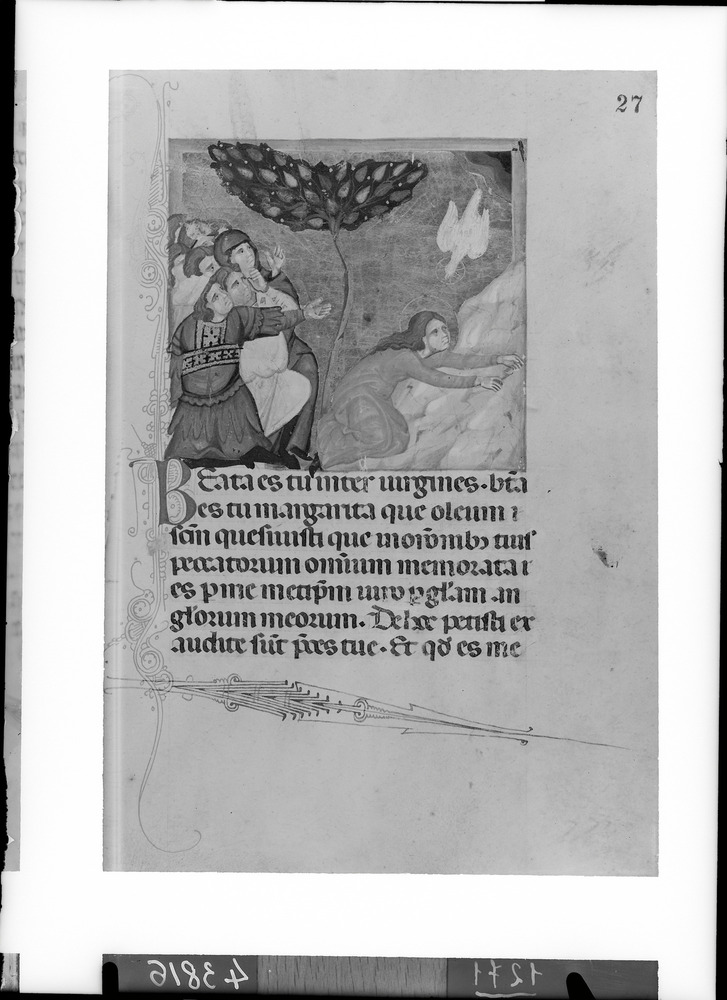 27
Beata es tu inter uirgines. bt̃a
es tu margarita que oleum i
sc̃m quesiuisti que in or̃onibꝫ tuis
peccatorum omnium memorata i
es p me metip̃m uiuo ꝑ gl̃am an
gl̃orum meorum. De hoc petisti ex
audite sũt p̃ces tue. Et qd̃ es me
43816
1271